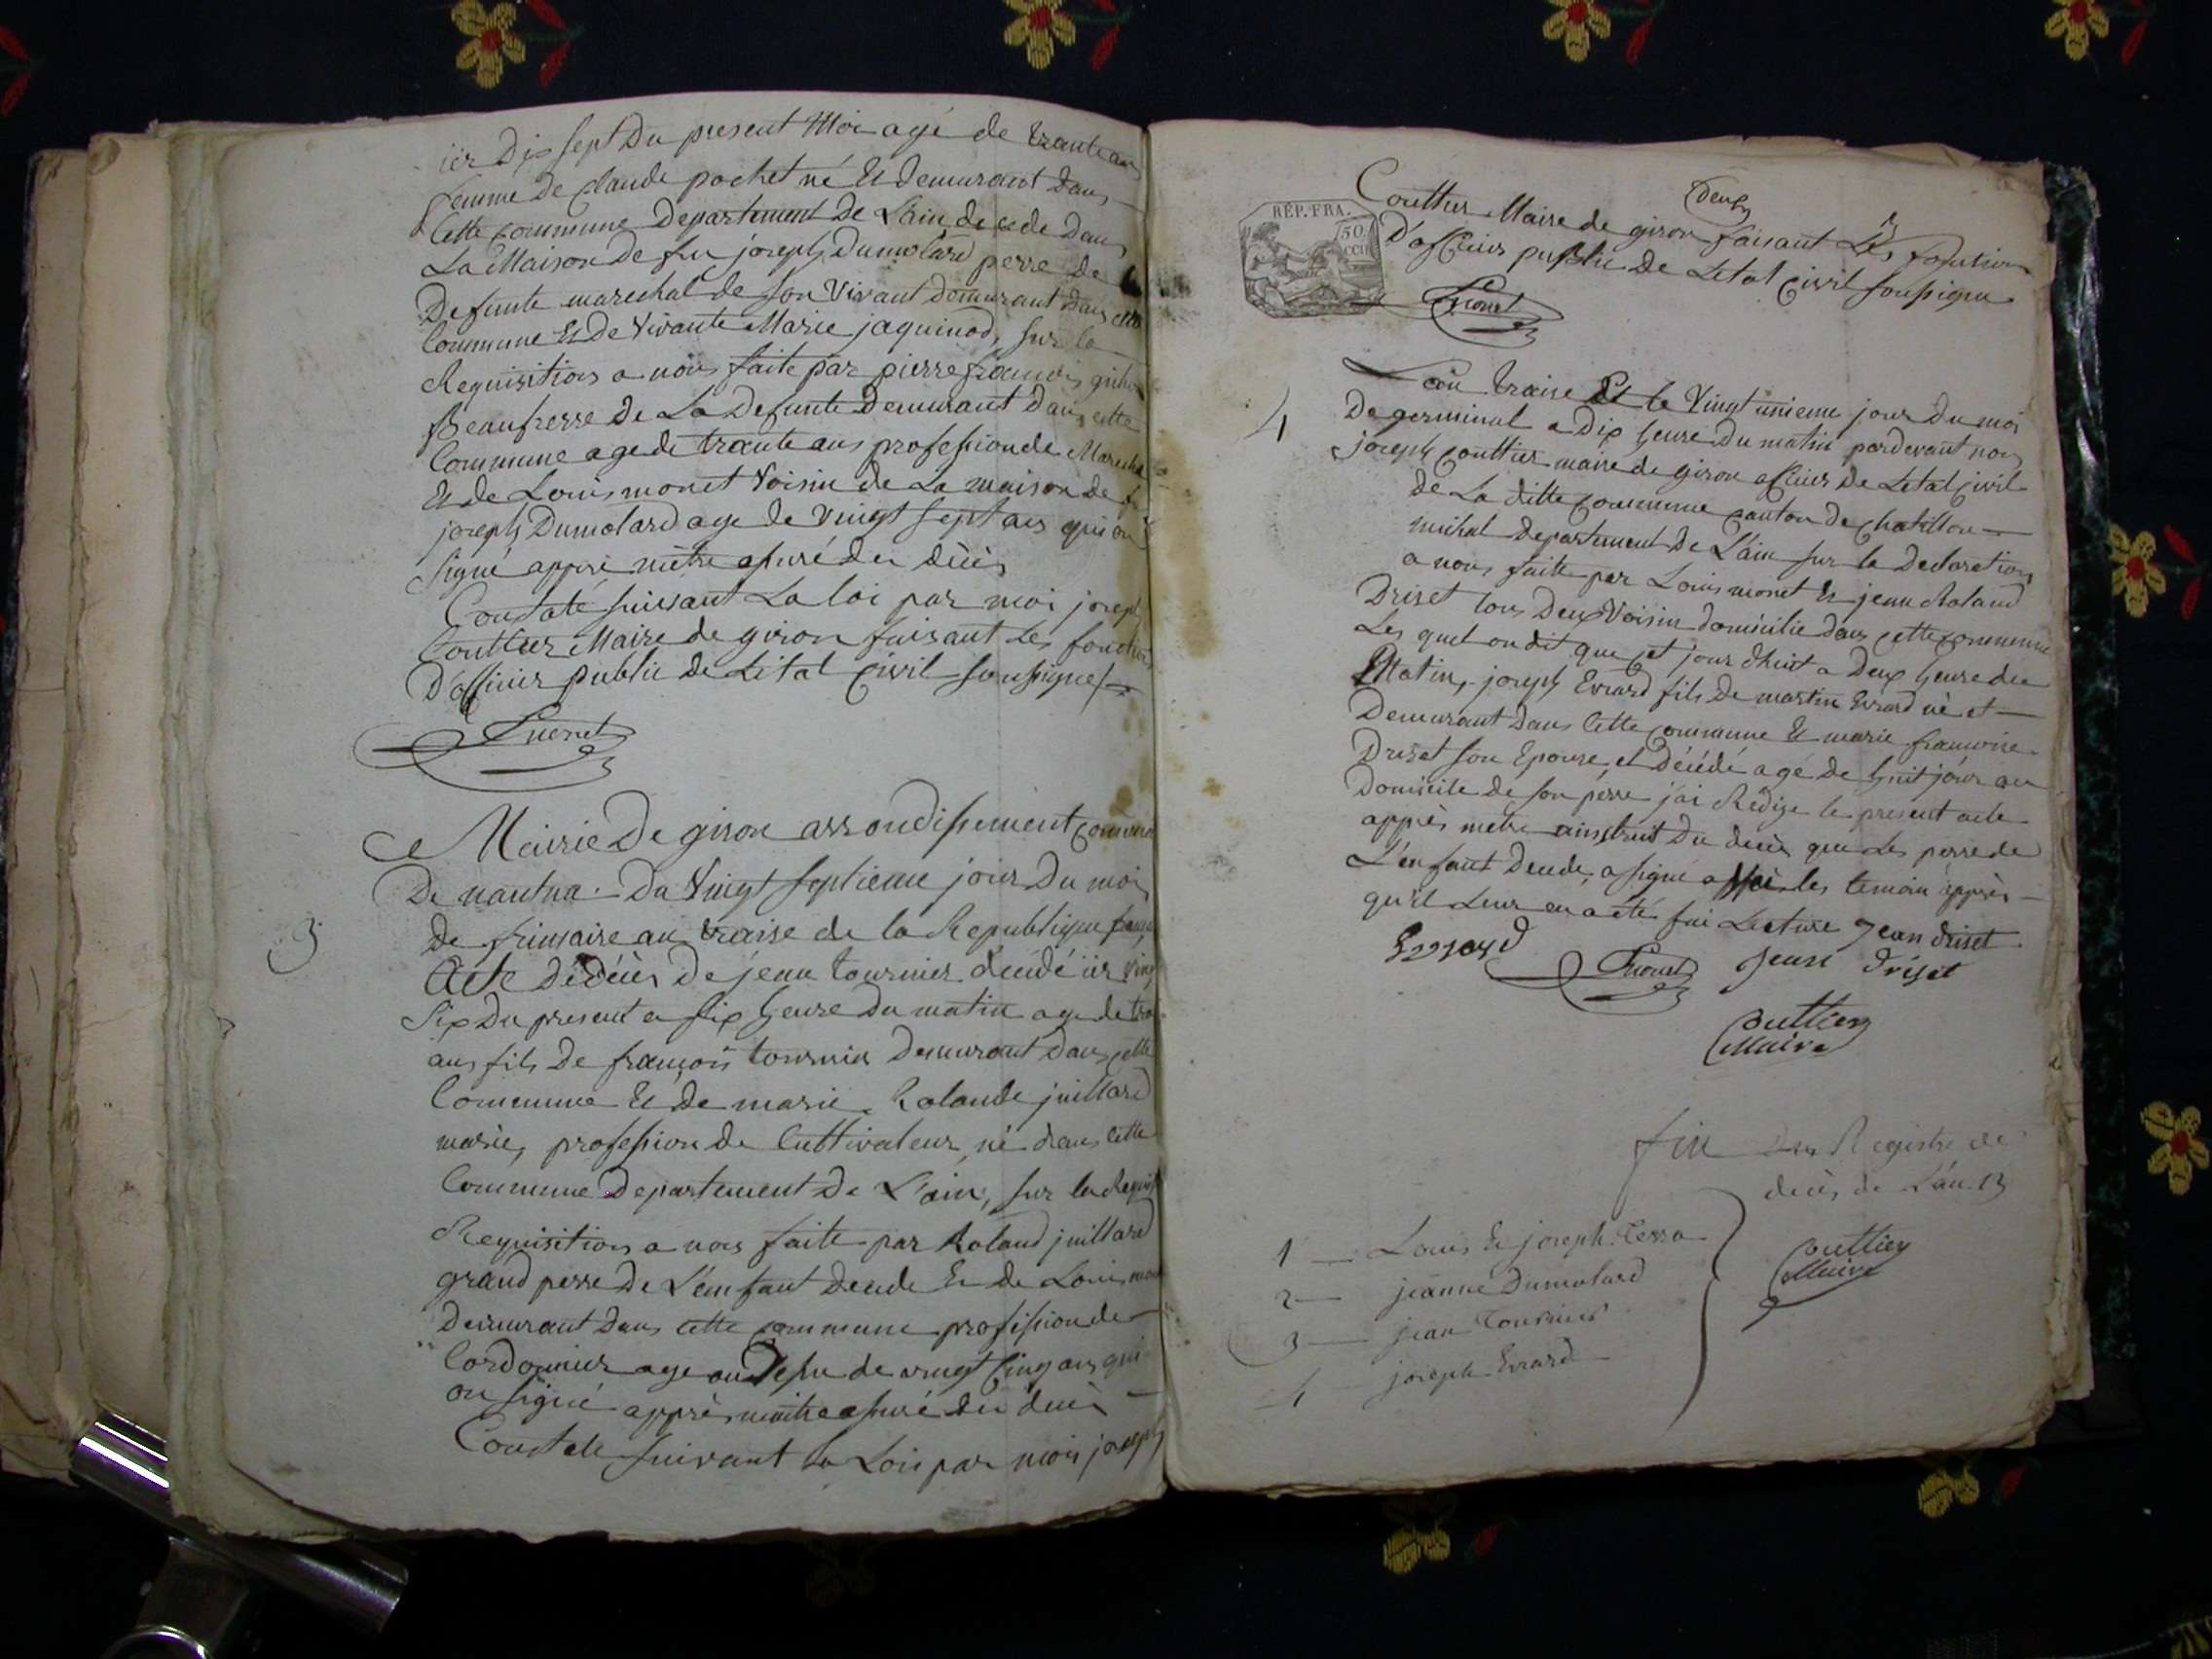 iër Dix sept Du present Moi agé de trante an
femme de Claude pochet né Et demurant Dans
Cette commune Departement De L'ain decede Dans
La Maison De feu joseph Dumolard perre de la
Defunte marechal de son Vivant demurant dans cette
Commune Et De Vivante Marie jaquinod, sur la
Requisitions a nous faite par pierre francois
Beaufrerre De La Defunte Demurant Dans cette
Commune age de trante ans profession de Marechal
Et de Louis monet Voisin de La maison de feu
joseph Dumolard age de Vingt sept ans qui on
signé apprè mètre assuré du décès
Constaté suivant La loi par moi joseph
Couttier Maire de giron faisant les fonctions
D'officier public de Létat Civil soussigne
LMonet
Mairie De giron arrondissement commune
De nantua. Du Vingt septieme jour Du mois
3
De frimaire an traise de la Republique
Acte de décès De jean tournier decédé iër Vingt
Six Du present a six heure Du matin age de
ans fils De françois tournier Demurant Dans cette
Commune Et De marie Rolande juillard
mariè, profession de Cultivateur, né dans cette
Commune Departement De L'ain, sur la Requis
Requisitions a nous faite par Roland juillard
grand perre De L'enfant Decede Et de Louis monet
Demurant Dans cette commune profession de
Cordonnier age au Desu de vingt Cinq ans qui
on signé apprè mètre assuré du decès
Constate suivant la Loi par moi joseph
deux
RÉP. FRA.
50
Couttier Maire de giron faisant Les fonctions
D'officier public De Letat Civil soussigne
LMonet
L'an traise Et le Vingt unieme jour Du moi
4
De germinal a Dix heure Du matin pardevant nous
joseph Couttier maire de giron officier De Letat civil
de La ditte commune canton de chatillon
michal Departement De L'ain sur la Declaration
a nous faite par Louis monet Et jean Roland
Driset tous Deux Voisin domicilie dans cette commune
Les quel on dit que cet jour d'huit a Deux heure du
Matin, joseph Evrard fils De martin Evrard né et
Demurant Dans Cette commune Et marie francoise
Driset son Epouse, et décédé agé de huit jour au
Domicile de son perre j'ai Rédige le present acte
apprès metre ainstruit Du decès que Les perre de
L'enfant Decede, a signé les temoin apprès
qu'il Leur en a été fai Lecture Jean driset
Evrard LMonet Jean driset
Couttier
Maire
fin du Registre de
decès de L'an 13
1 — Louis Et joseph Terra
2 — jeanne Dumolard
3 — jean Tournier
4 joseph Evrard
Couttier
Maire